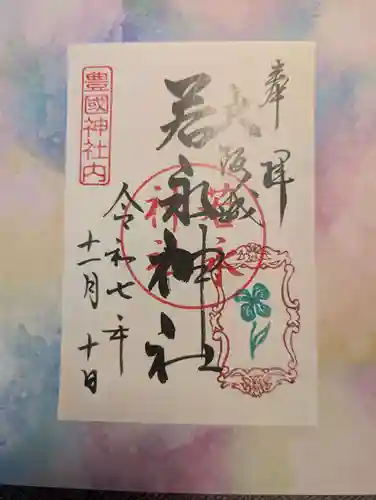 奉拝
大阪城
若永神社
令和七年
十一月十日
豊國神社内
若永神社